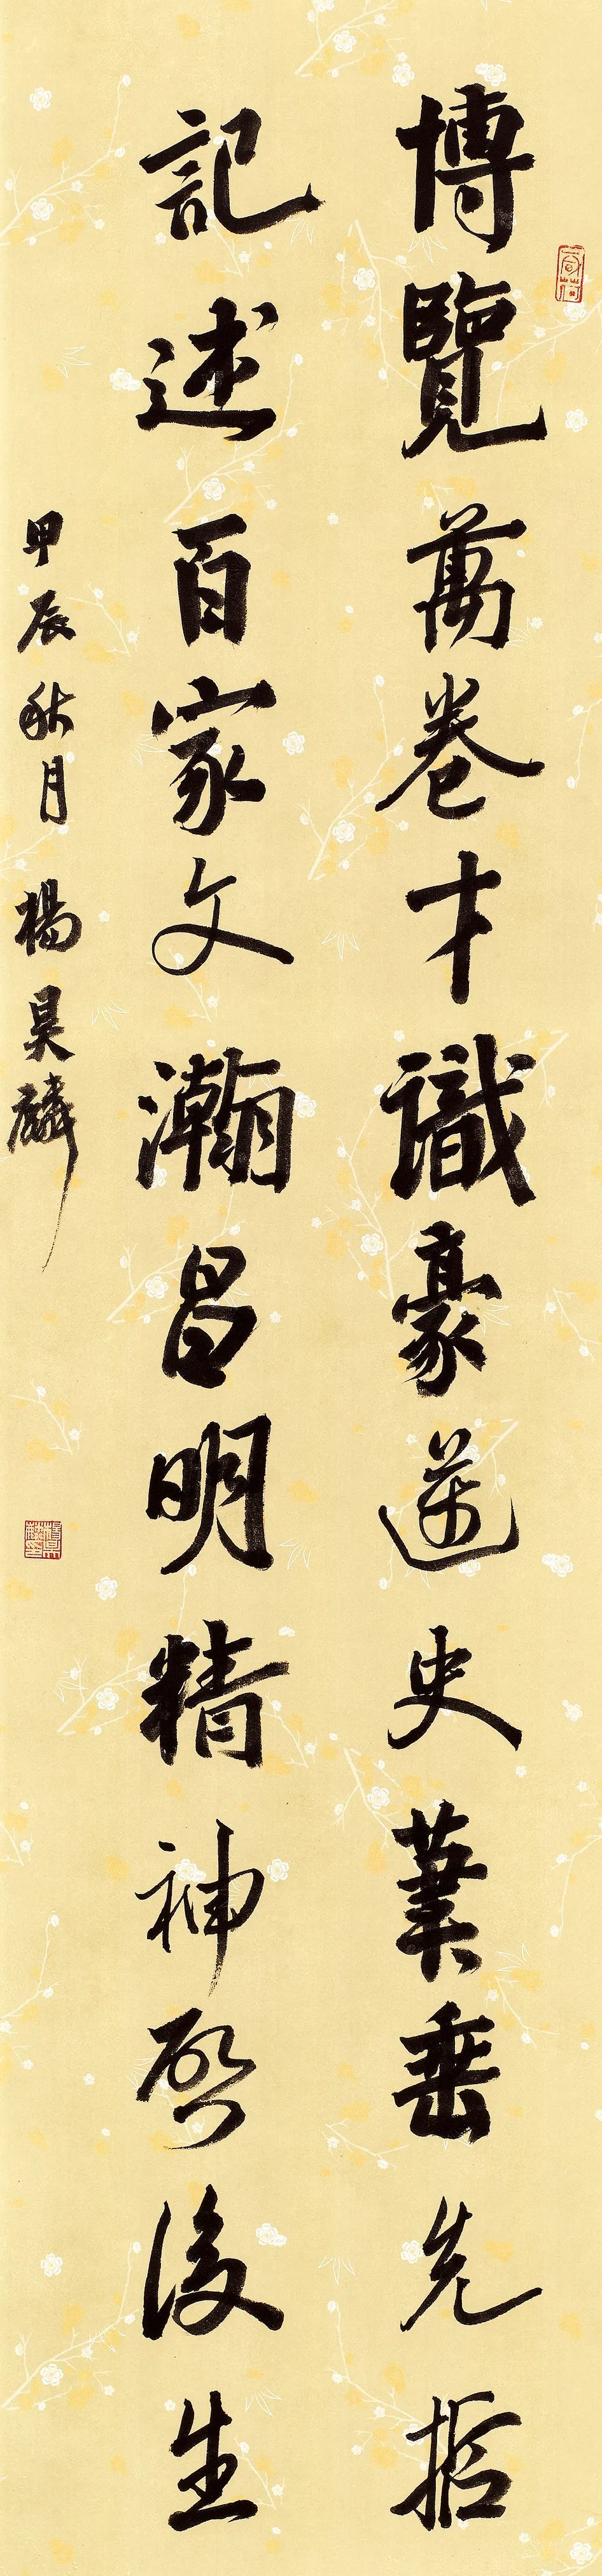 博覽萬卷才識豪邁史業垂先哲
記述百家文瀚昌明精神啓後生
甲辰秋月 楊昊麟
楊昊麟印